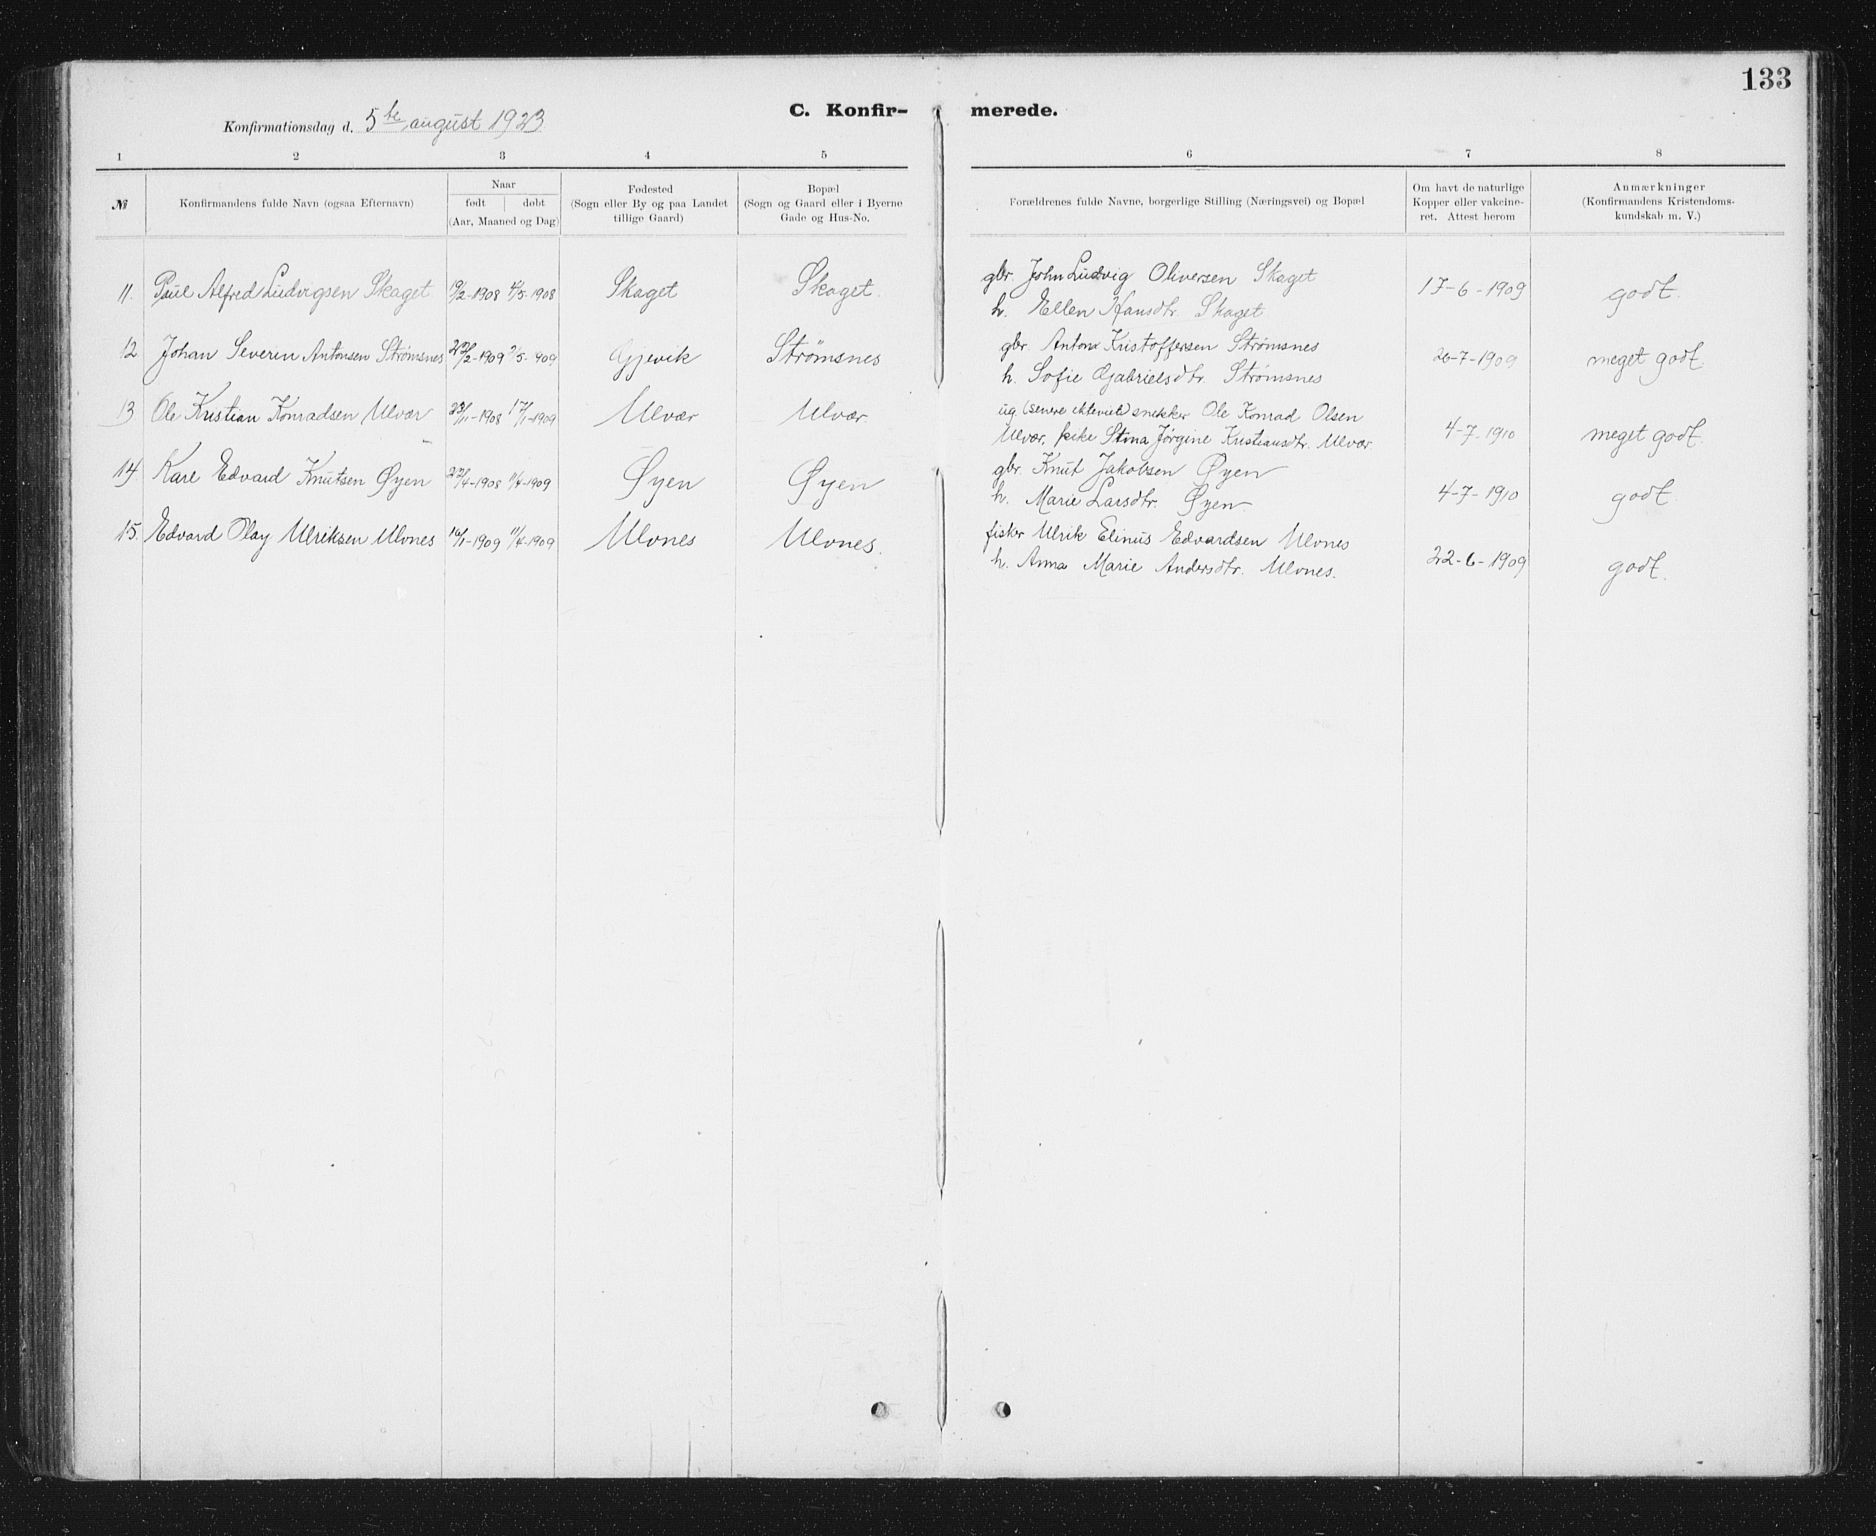 133
C. Konfir- merede.
Konfirmationsdag d. 5te august 1923
1 2 3 4 5 6 7 8
№ Konfirmandens fulde Navn (ogsaa Efternavn) Naar født døbt (Aar, Maaned og Dag) Fødested (Sogn eller By og paa Landet tillige Gaard) Bopæl (Sogn og Gaard eller i Byerne Gade og Hus-No. Forældrenes fulde Navne, borgerlige Stilling (Næringsvei) og Bopæl Om havt de naturlige Kopper eller vakcineret. Attest herom Anmærkninger (Konfirmandens Kristendomskundskab m. V.)
11. Paul Alfred Ludvigsen Skaget 19/2-1908 4/5-1908 Skaget Skaget. gbr. John Ludvig Oliversen Skaget
h. Ellen Hansdtr. Skaget 17-6-1909 godt.
12 Johan Severin Antonsen Strømsnes 23/2-1909 2/5-1909 Gjevik Strømsnes gbr. Anton Kristoffersen Strømsnes
h. Sofie Gabrielsdtr. Strømsnes 20-7-1909 meget godt.
13 Ole Kristian Konradsen Ulvær 23/11-1908 17/1-1909 Ulvær Ulvær. ug. (senere ektevied) snekker Ole Konrad Olsen
Ulvær, pike Stina Jørgine Kristiansdtr. Ulvær. 4-7-1910 meget godt.
14. Kare Edvard Knutsen Øyen 1908 11/4-1909 Øyen Øyen gbr. Knut Jakobsen Øyen
h. Marie Larsdtr. Øyen 4-7-1910 godt.
15. Edvard Olay Ulriksen Ulvnes 16/1-1909 11/4-1909 Ulvnes Ulvnes. fisker Ulrik Elinus Edvardsen Ulvnes
h. Anna Marie Andersdtr. Ulvnes. 22-6-1909 godt.